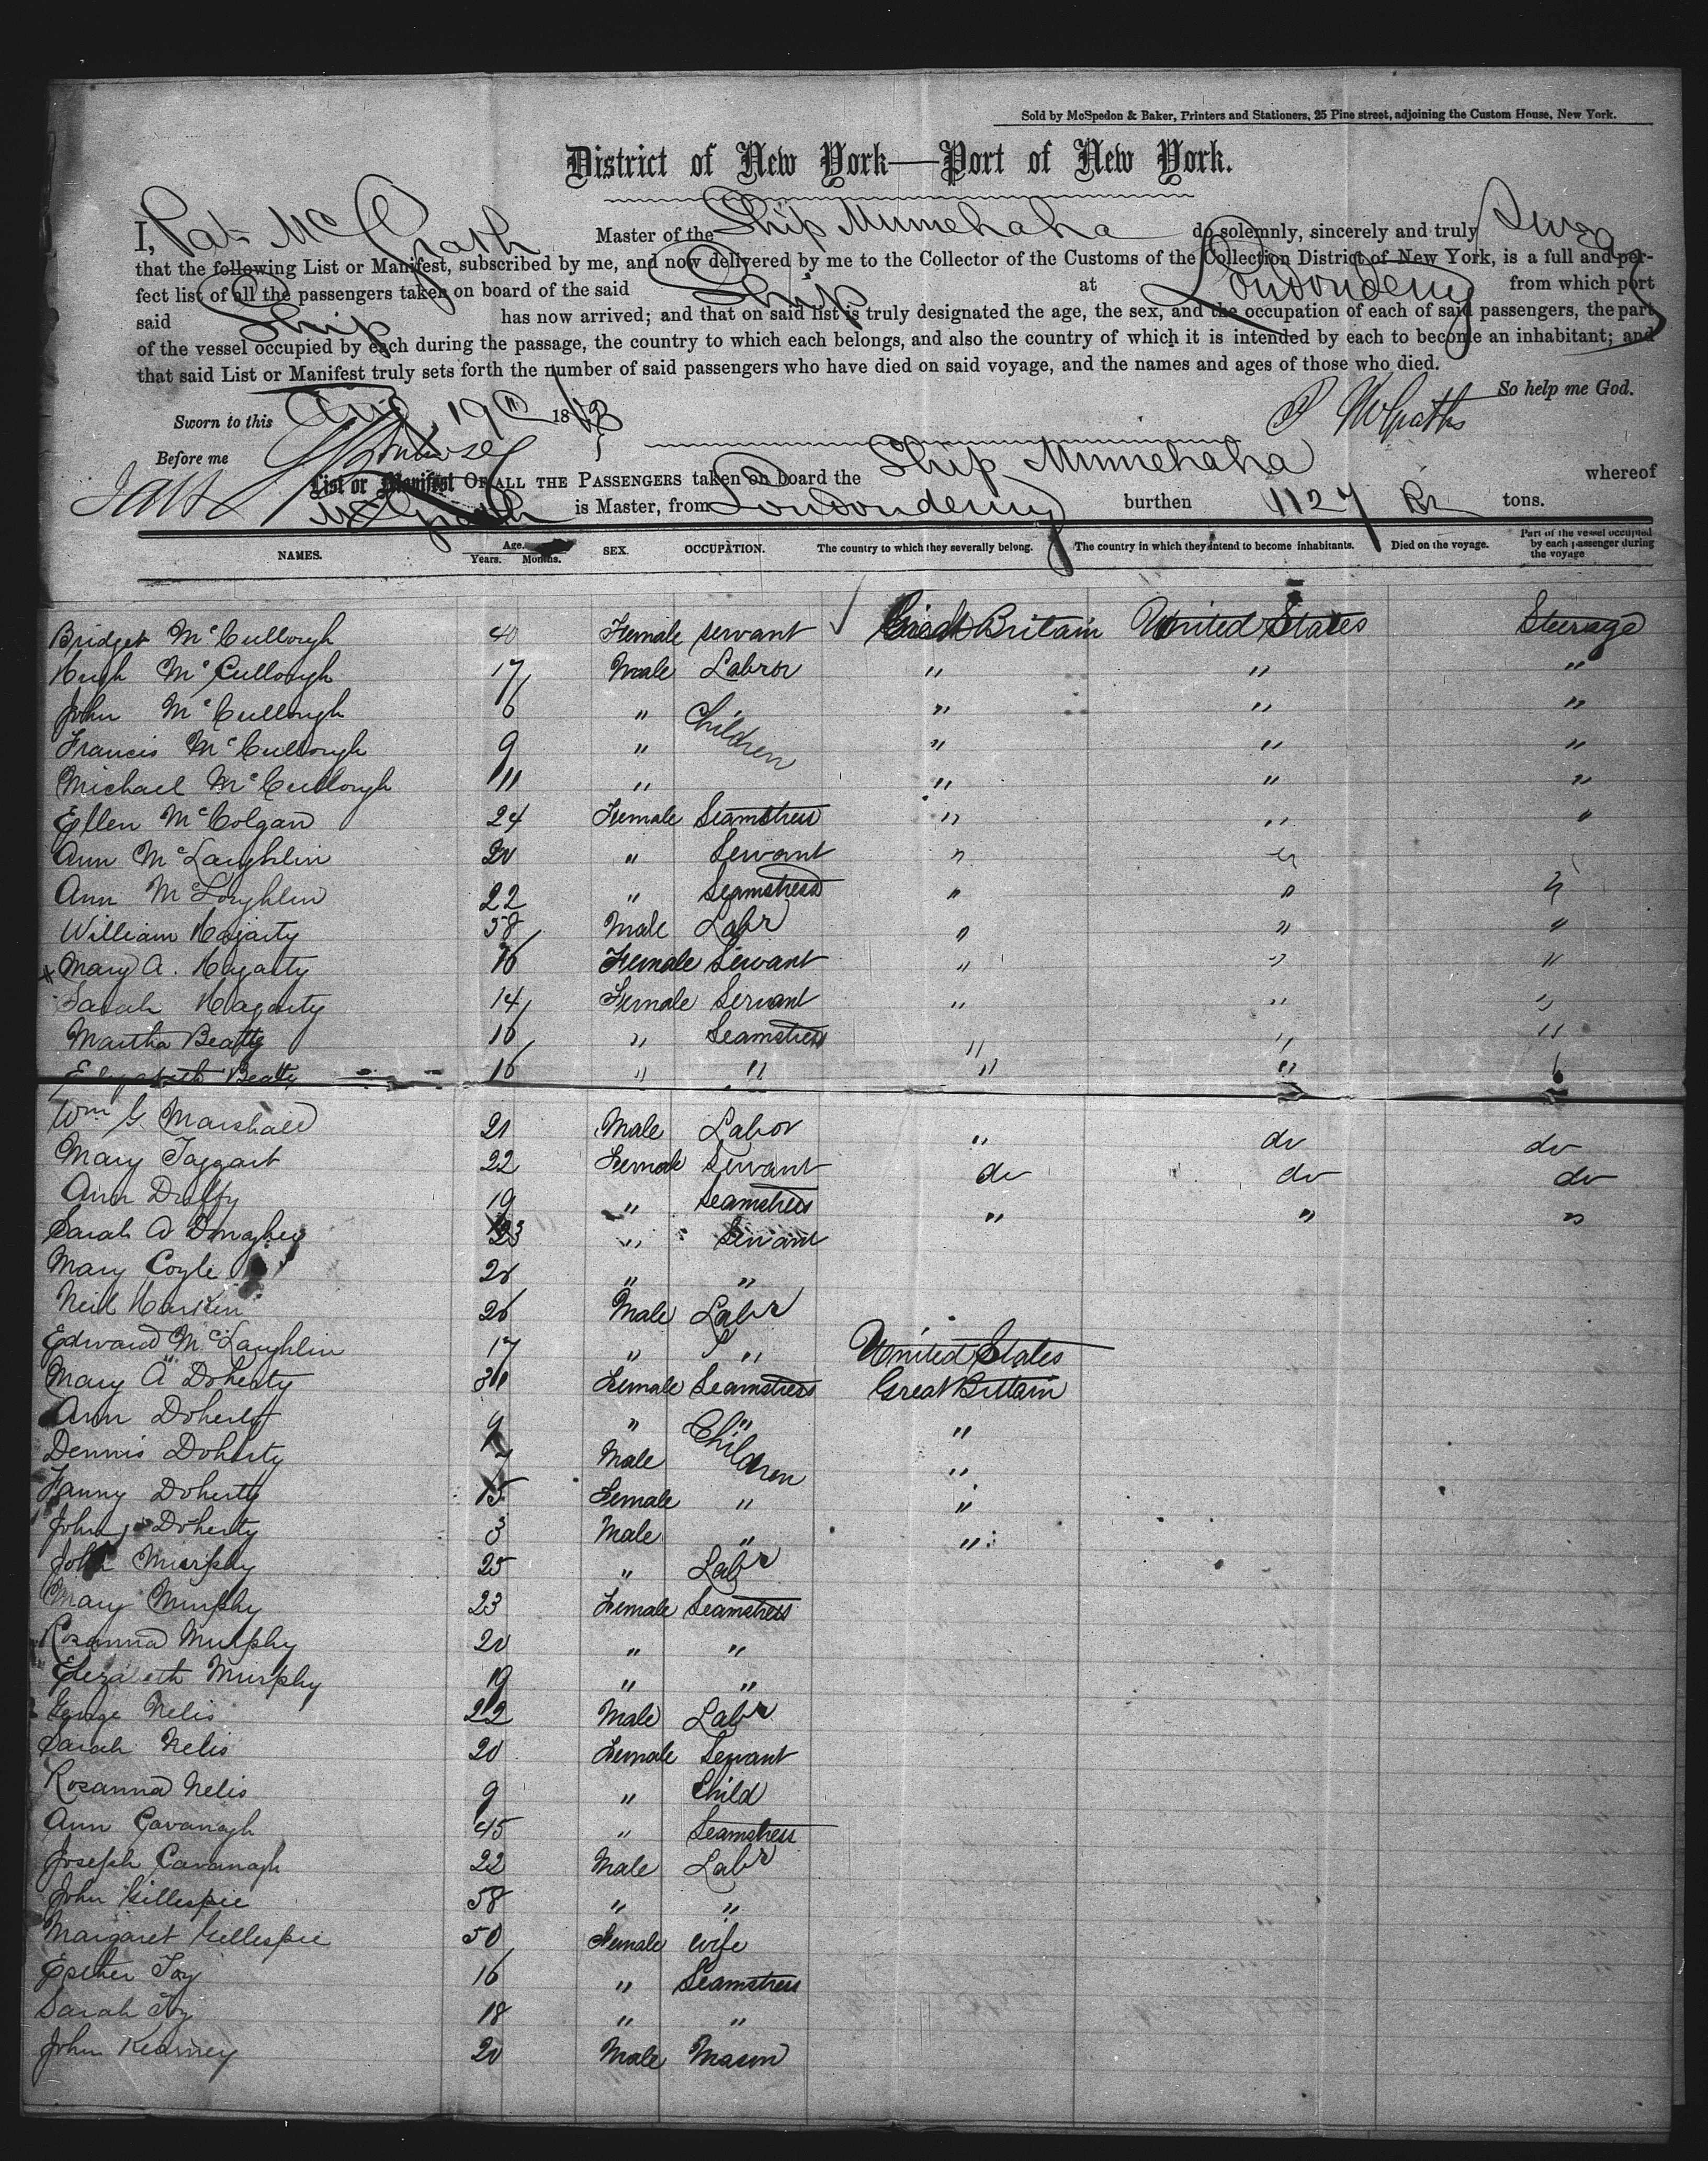 Sold by McSpedon & Baker, Printers and Stationers, 25 Pine street, adjoining the Custom House, New York.
District of New York—Port of New York.
I, Pat. McGrath Master of the Ship Minnehaha do solemnly, sincerely and truly swear
that the following List or Manifest, subscribed by me, and now delivered by me to the Collector of the Customs of the Collection District of New York, is a full and per-
fect list of all the passengers taken on board of the said Ship at Londonderry from which port
said Ship has now arrived; and that on said list is truly designated the age, the sex, and the occupation of each of said passengers, the part
of the vessel occupied by each during the passage, the country to which each belongs, and also the country of which it is intended by each to become an inhabitant; and
that said List or Manifest truly sets forth the number of said passengers who have died on said voyage, and the names and ages of those who died.
So help me God.
Sworn to this Aug 19th 18 P McGrath
Before me
List or Manifest OF ALL THE PASSENGERS taken on board the Ship Minnehaha whereof
McGrath is Master, from Londonderry burthen 1127 tons.
NAMES. Age. Years. Months. SEX. OCCUPATION. The country to which they severally belong. The country in which they intend to become inhabitants. Died on the voyage. Part of the vessel occupied by each passenger during the voyage
Bridget McCullough 40 Female servant Great Britain United States Steerage
Hugh McCullough 17 Male Labror " " "
John McCullough 6 " Children " " "
Francis McCullough 9 " " " "
Michael McCullough 11 " " " "
Ellen McColgan 24 Female Seamstress " " "
Ann McLaughlin 20 " Servant " "
Ann McLoughlin 22 " Seamstress " " "
William Hagarty 58 Male Labr " " "
Mary A. Hagarty 16 Female Servant " " "
Sarah Hagarty 14 Female Servant " " "
Martha Beatty 16 " Seamstress " " "
Elizabeth Beatty 16 " " " "
Wm G. Marshall 21 Male Labor " do do
Mary Taggart 22 Female Servant do do do
Ann Duffy 19 " Seamstress " " "
Sarah A Donaghey 23 " Servant
Mary Coyle 20 " "
Neil Harkin 26 Male Labr
Edward McLaughlin 17 " " United States
Mary A Doherty 30 Female Seamstress Great Britain
Ann Doherty 9 " Children "
Dennis Doherty 7 Male "
Fanny Doherty 5 Female " "
John Doherty 3 Male " "
John Murphy 25 " Labr
Mary Murphy 23 Female Seamstress
Rosanna Murphy 20 " "
Elizabeth Murphy 19 " "
George Nelis 22 Male Labr
Sarah Nelis 20 Female Servant
Rosanna Nelis 9 " Child
Ann Cavanagh 45 " Seamstress
Joseph Cavanagh 22 Male Labr
John Gillespie 58 " "
Margaret Gillespie 50 Female wife
Esther Toy 16 " Seamstress
Sarah Toy 18 " "
John Kearney 20 Male Mason